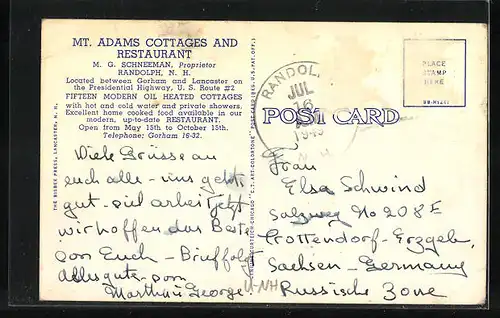 MT. ADAMS COTTAGES AND
RESTAURANT
M. G. SCHNEEMAN, Proprietor
RANDOLPH, N. H.
Located between Gorham and Lancaster on
the Presidential Highway, U. S. Route #2
FIFTEEN MODERN OIL HEATED COTTAGES
with hot and cold water and private showers.
Excellent home cooked food available in our
modern, up-to-date RESTAURANT.
Open from May 15th to October 15th.
Telephone: Gorham 16-32.
Viele Grüsse an
euch alle - uns geht
gut - viel arbeit jetzt
wir hoffen das Beste
von Euch - Brief folgt
alles gute von
Martha u George
U-NH
THE BISBEE PRESS, LANCASTER, N. H.
RANDOL
JUL
16
1949
N H
POST CARD
PLACE
STAMP
HERE
Frau
Elsa Schwind
Salzweg No 208 E
Crottendorf - Erzgeb.
Sachsen - Germany
Russische Zone